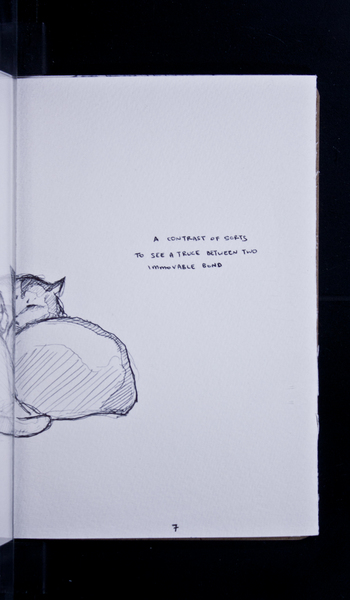 A CONTRAST OF SORTS
TO SEE A TRUCE BETWEEN TWO
IMMOVABLE BOND
7